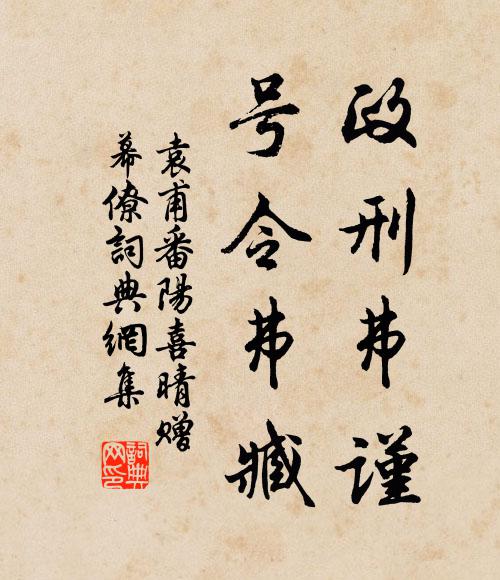 政刑弗谨
号令弗臧
袁甫番陽喜晴贈
幕僚詞典網集
詞典
网印